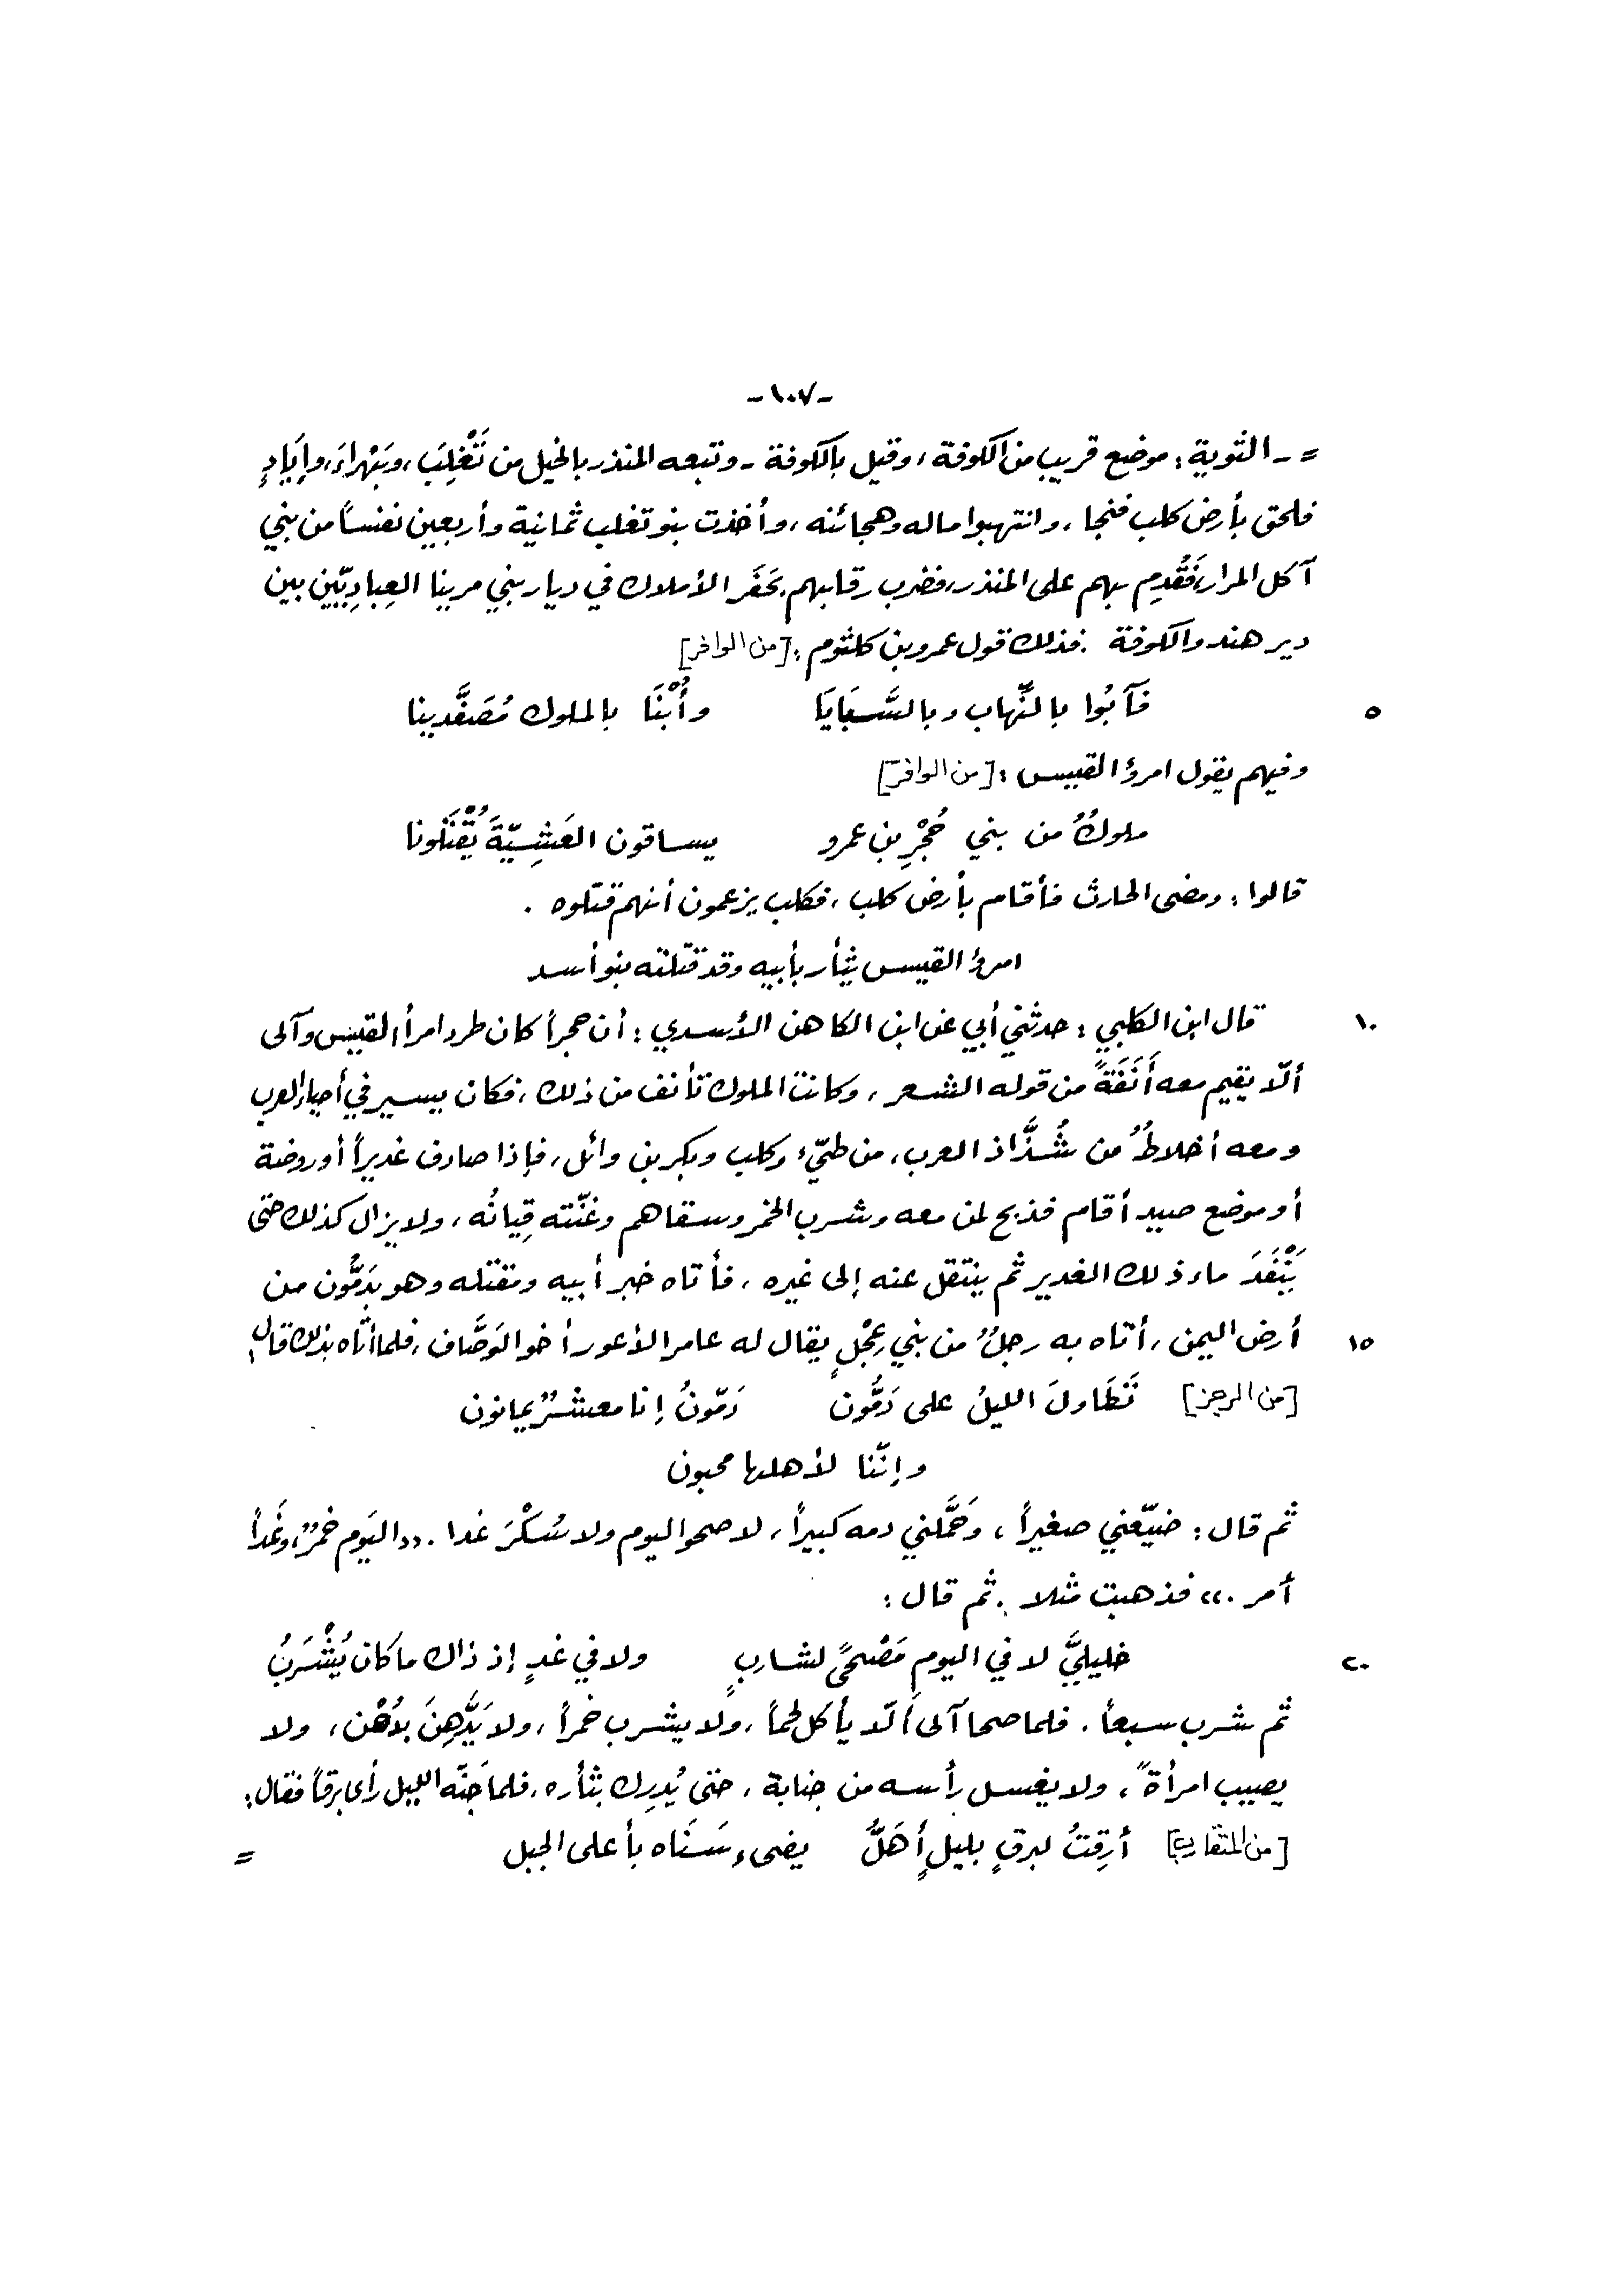 -١٠٧-
= - الثوية : موضع قريب من الكوفة ، وقيل بالكوفة - وتبعه المنذر بالخيل من تَغْلِبَ ، وبَهْراءَ، وإيَادٍ
فلحق بأرض كلب فنجا ، وانتهبوا ماله وهجائنه ، وأخذت بنو تغلب ثمانية وأربعين نفساً من بني
آكل المرار، فَقُدِم بهم على المنذر، فضرب رقابهم بحَفَر الأملاك في ديار بني مرينا العِبادِيّين بين
دير هند والكوفة . فذلك قول عمرو بن كلثوم : [من الوافر]
٥ فَآبُوا بالنِّهاب وبالسَّبَايَا وأُبْنَا بالملوك مُصَفَّدينا
وفيهم يقول امرؤ القيس : [من الوافر]
ملوكٌ من بني حُجْرِ بن عمرو يساقون العَشِيّةَ يُقْتَلونا
قالوا : ومضى الحارث فأقام بأرض كلب ، فكلب يزعمون أنهم قتلوه .
امرؤ القيس يثأر بأبيه وقد قتلته بنو أسد
١٠ قال ابن الكلبي : حدثني أبي عن ابن الكاهن الأسدي : أن حجراً كان طرد امرأ القيس وآلى
ألّا يقيم معه أَنَفَةً من قوله الشعر ، وكانت الملوك تأنف من ذلك ، فكان يسير في أحياء العرب
ومعه أخلاطٌ من شُذَّاذ العرب ، من طيّء وكلب وبكر بن وائل ، فإذا صادف غديراً أو روضة
أو موضع صيد أقام فذبح لمن معه وشرب الخمر وسقاهم وغنّته قِيانُه ، ولا يزال كذلك حتى
يَنْفَدَ ماء ذلك الغدير ثم ينتقل عنه إلى غيره ، فأتاه خبر أبيه ومقتله وهو بدَمُّون من
١٥ أرض اليمن ، أتاه به رجلٌ من بني عِجْلٍ يقال له عامر الأعور أخو الوَصَّاف ، فلما أتاه بذلك قال :
[من الرجز] تَطَاولَ الليلُ على دَمُّون دَمّونُ إنا معشرٌ يمانون
وإنّنا لأهلها محبون
ثم قال : ضيّعني صغيراً ، وحَمَّلني دمه كبيراً ، لا صحو اليوم ولا سُكْرَ غدا . «اليَوم خمرٌ، وغَداً
أمر .» فذهبت مثلا . ثم قال :
٢٠ خليليَّ لا في اليومِ مَصْحىً لشاربٍ ولا في غدٍ إذ ذاك ما كان يُشْرَبُ
ثم شرب سبعاً . فلما صحا آلى ألّا يأكل لحماً ، ولا يشرب خمراً ، ولا يَدَّهِنَ بدُهْن ، ولا
يصيب امرأةً ، ولا يغسل رأسه من جنابة ، حتى يُدرِك بثأره ، فلما جَنّه الليل رأى برقاً فقال :
[من المتقارب] أرِقتُ لبرقٍ بليلٍ أَهَلَّ يضيء سَنَاه بأعلى الجبل =